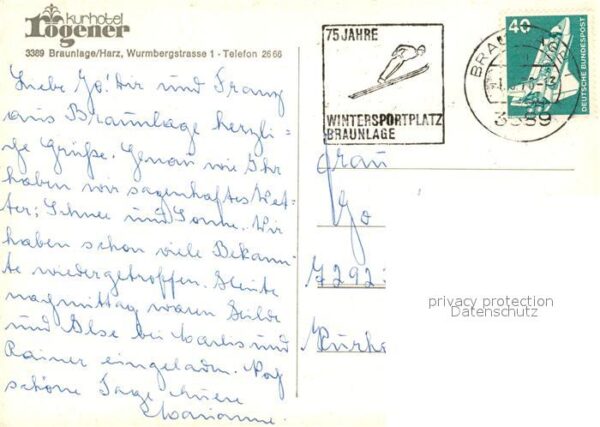 kurhotel
rögener
3389 Braunlage/Harz, Wurmbergstrasse 1 - Telefon 26 66
Liebe Jo! Dir und Franz
aus Braunlage herzli-
che Grüße. Genau wie Ihr
haben wir sagenhaftes Wet-
ter: Schnee und Sonne. Wir
haben schon viele Bekann-
te wiedergetroffen. Heute
nachmittag waren
und Ilse bei Marlis und
Rainer eingeladen. Noch
schöne Tage Eure
Marianne.
75 JAHRE
WINTERSPORTPLATZ
BRAUNLAGE
3389
40
DEUTSCHE BUNDESPOST
Frau
Jo
7292
privacy protection
Datenschutz